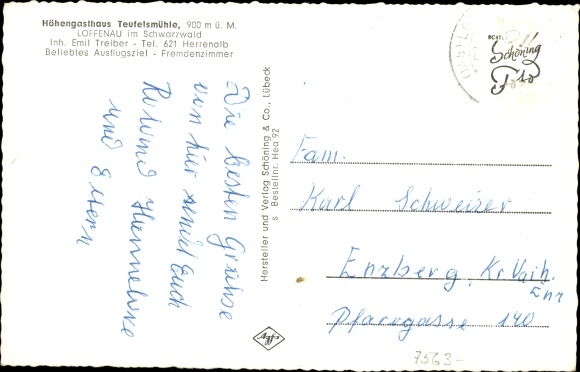 Höhengasthaus Teufelsmühle, 900 m ü. M.
LOFFENAU im Schwarzwald
Inh. Emil Treiber - Tel. 621 Herrenalb
Beliebtes Ausflugsziel - Fremdenzimmer
Die besten Grühse
von hir sendet Euch
Roland Hannelore
und Eltern
Hersteller und Verlag Schöning & Co., Lübeck
S Bestellnr. Hea 92
Schöning
Foto
Fam.
Karl Schweizer
Enzberg, Kr. Vaih.
Enz
Pfarrgasse 140
Agfa
7563-